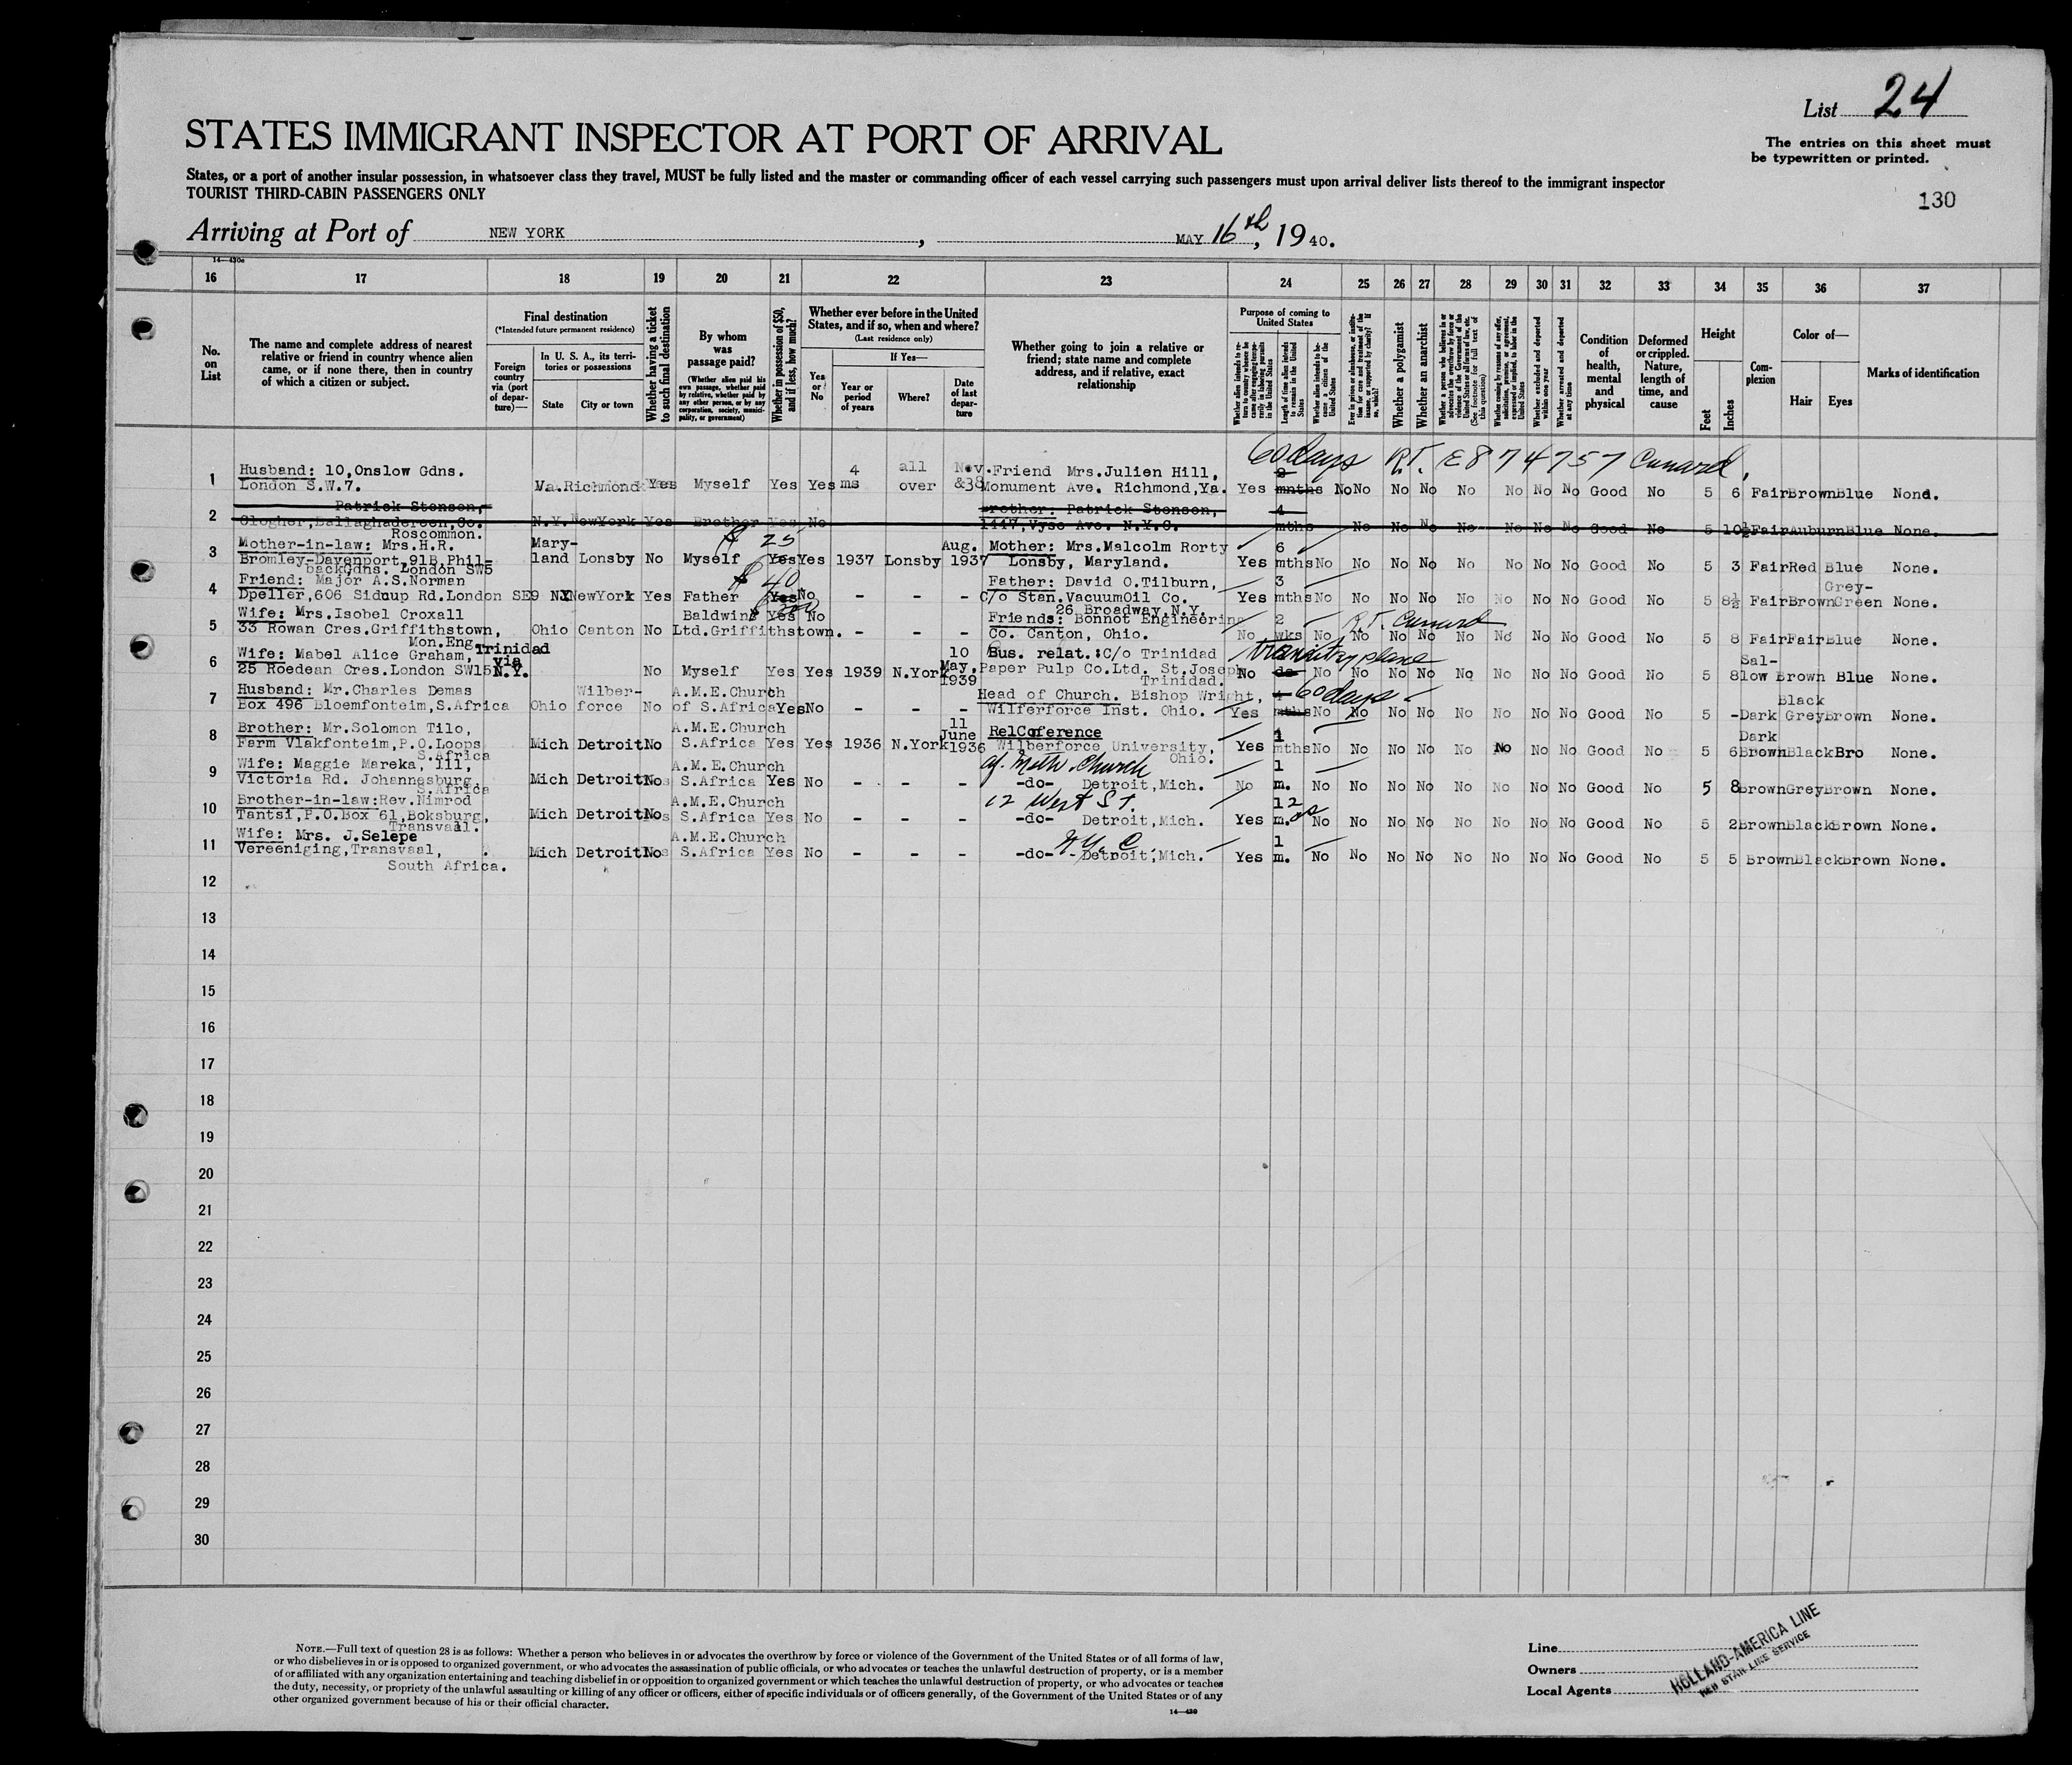 List 24
STATES IMMIGRANT INSPECTOR AT PORT OF ARRIVAL
The entries on this sheet must
be typewritten or printed.
States, or a port of another insular possession, in whatsoever class they travel, MUST be fully listed and the master or commanding officer of each vessel carrying such passengers must upon arrival deliver lists thereof to the immigrant inspector
TOURIST THIRD-CABIN PASSENGERS ONLY
130
Arriving at Port of NEW YORK, MAY 16th, 1940.
16 17 18 19 20 21 22 23 24 25 26 27 28 29 30 31 32 33 34 35 36 37
No. on List
The name and complete address of nearest relative or friend in country whence alien came, or if none there, then in country of which a citizen or subject.
Final destination
(*Intended future permanent residence)
Foreign country via (port of departure)—
In U. S. A., its territories or possessions
State
City or town
Whether having a ticket to such final destination
By whom was passage paid?
(Whether alien paid his own passage, whether paid by relative, whether paid by any other person, or by any corporation, society, municipality, or government)
Whether in possession of $50, and if less, how much?
Whether ever before in the United States, and if so, when and where?
(Last residence only)
Yes or No
If Yes—
Year or period of years
Where?
Date of last departure
Whether going to join a relative or friend; state name and complete address, and if relative, exact relationship
Purpose of coming to United States
Length of time alien intends to remain in the United States
Whether alien intends to become a citizen of the United States
Whether a polygamist
Whether an anarchist
Whether excluded and deported within one year
Whether arrested and deported at any time
Condition of health, mental and physical
Deformed or crippled. Nature, length of time, and cause
Height
Feet
Inches
Complexion
Color of—
Hair
Eyes
Marks of identification
60 days R.T. E874757 Cunard,
1 Husband: 10,Onslow Gdns. London S.W.7. Va. Richmond Yes Myself Yes Yes 4 ms all over Nov. &38 Friend Mrs.Julien Hill, Monument Ave. Richmond,Va. Yes mnths No No No No No No No No Good No 5 6 Fair Brown Blue None.
2 Patrick Stenson, Clogher,Ballaghadereen,Co. Roscommon. N.Y. NewYork Yes Brother Yes No Brother: Patrick Stenson, 1447,Vyse Ave. N.Y.C. 4 mths No No No No No No No Good No 5 10½ Fair Auburn Blue None.
3 Mother-in-law: Mrs.H.R. Bromley-Davenport,91B,Philbeckgdns. London SW5 Mary-land Lonsby No Myself $ 25 Yes Yes 1937 Lonsby Aug. 1937 Mother: Mrs.Malcolm Rorty Lonsby, Maryland. Yes 6 mths No No No No No No No No Good No 5 3 Fair Red Blue None.
4 Friend: Major A.S.Norman Dpeller,606 Sidcup Rd.London SE9 NY NewYork Yes Father $ 40 Yes No - - - Father: David O.Tilburn, C/o Stan.VacuumOil Co. 26 Broadway,N.Y. Yes 3 mths No No No No No No No No Good No 5 8½ Fair Brown Grey-Green None.
5 Wife: Mrs.Isobel Croxall 33 Rowan Cres.Griffithstown, Mon.Eng. Ohio Canton No Baldwins Ltd.Griffithstown. $ 200 Yes No - - - Friends: Bonnot Engineering Co. Canton, Ohio. No 2 wks No R.T. Cunard No No No No No No No Good No 5 8 Fair Fair Blue None.
6 Wife: Mabel Alice Graham, 25 Roedean Cres.London SW15 Trinidad via N.Y. No Myself Yes Yes 1939 N.York 10 May. 1939 Bus. relat.:C/o Trinidad Paper Pulp Co.Ltd. St.Joseph Trinidad. No transit by plane No No No No No No No No Good No 5 8 Sal-low Brown Blue None.
7 Husband: Mr.Charles Demas Box 496 Bloemfonteim,S.Africa Ohio Wilber-force No A.M.E.Church of S.Africa Yes No - - - Head of Church. Bishop Wright, Wilferforce Inst. Ohio. Yes mths 60 days No No No No No No No No Good No 5 - Dark Black Grey Brown None.
8 Brother: Mr.Solomon Tilo, Farm Vlakfonteim,P.O.Loops S.Africa Mich Detroit No A.M.E.Church S.Africa Yes Yes 1936 N.York 11 June 1936 RelCoference Wilberforce University, Ohio. Yes 1 mths No No No No No No No No Good No 5 6 Dark Brown Black Bro None.
9 Wife: Maggie Mareka, 111, Victoria Rd. Johannesburg, S.Africa Mich Detroit No A.M.E.Church S.Africa Yes No - - - Meth. Church -do- Detroit,Mich. No 1 m. No No No No No No No No Good No 5 8 Brown Grey Brown None.
10 Brother-in-law:Rev.Nimrod Tantsi,P.O.Box 61,Boksburg, Transvaal. Mich Detroit No A.M.E.Church S.Africa Yes No - - - 12 West St. -do- Detroit,Mich. Yes 12 m. No No No No No No No No Good No 5 2 Brown Black Brown None.
11 Wife: Mrs. J.Selepe Vereeniging,Transvaal, South Africa. Mich Detroit No A.M.E.Church S.Africa Yes No - - - N.Y.C. -do- Detroit,Mich. Yes 1 m. No No No No No No No No Good No 5 5 Brown Black Brown None.
12
13
14
15
16
17
18
19
20
21
22
23
24
25
26
27
28
29
30
NOTE.—Full text of question 28 is as follows: Whether a person who believes in or advocates the overthrow by force or violence of the Government of the United States or of all forms of law,
or who disbelieves in or is opposed to organized government, or who advocates the assassination of public officials, or who advocates or teaches the unlawful destruction of property, or is a member
of or affiliated with any organization entertaining and teaching disbelief in or opposition to organized government or which teaches the unlawful destruction of property, or who advocates or teaches
the duty, necessity, or propriety of the unlawful assaulting or killing of any officer or officers, either of specific individuals or of officers generally, of the Government of the United States or of any
other organized government because of his or their official character.
14—430
Line
Owners
Local Agents
HOLLAND-AMERICA LINE
RED STAR LINE SERVICE